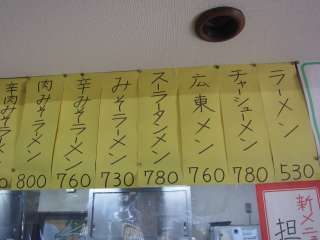 ラーメン
530
チャーシューメン
780
広東メン
760
スーラータンメン
780
みそラーメン
730
辛みそラーメン
760
肉みそラーメン
800
辛肉みそラーメン
新メニ
担